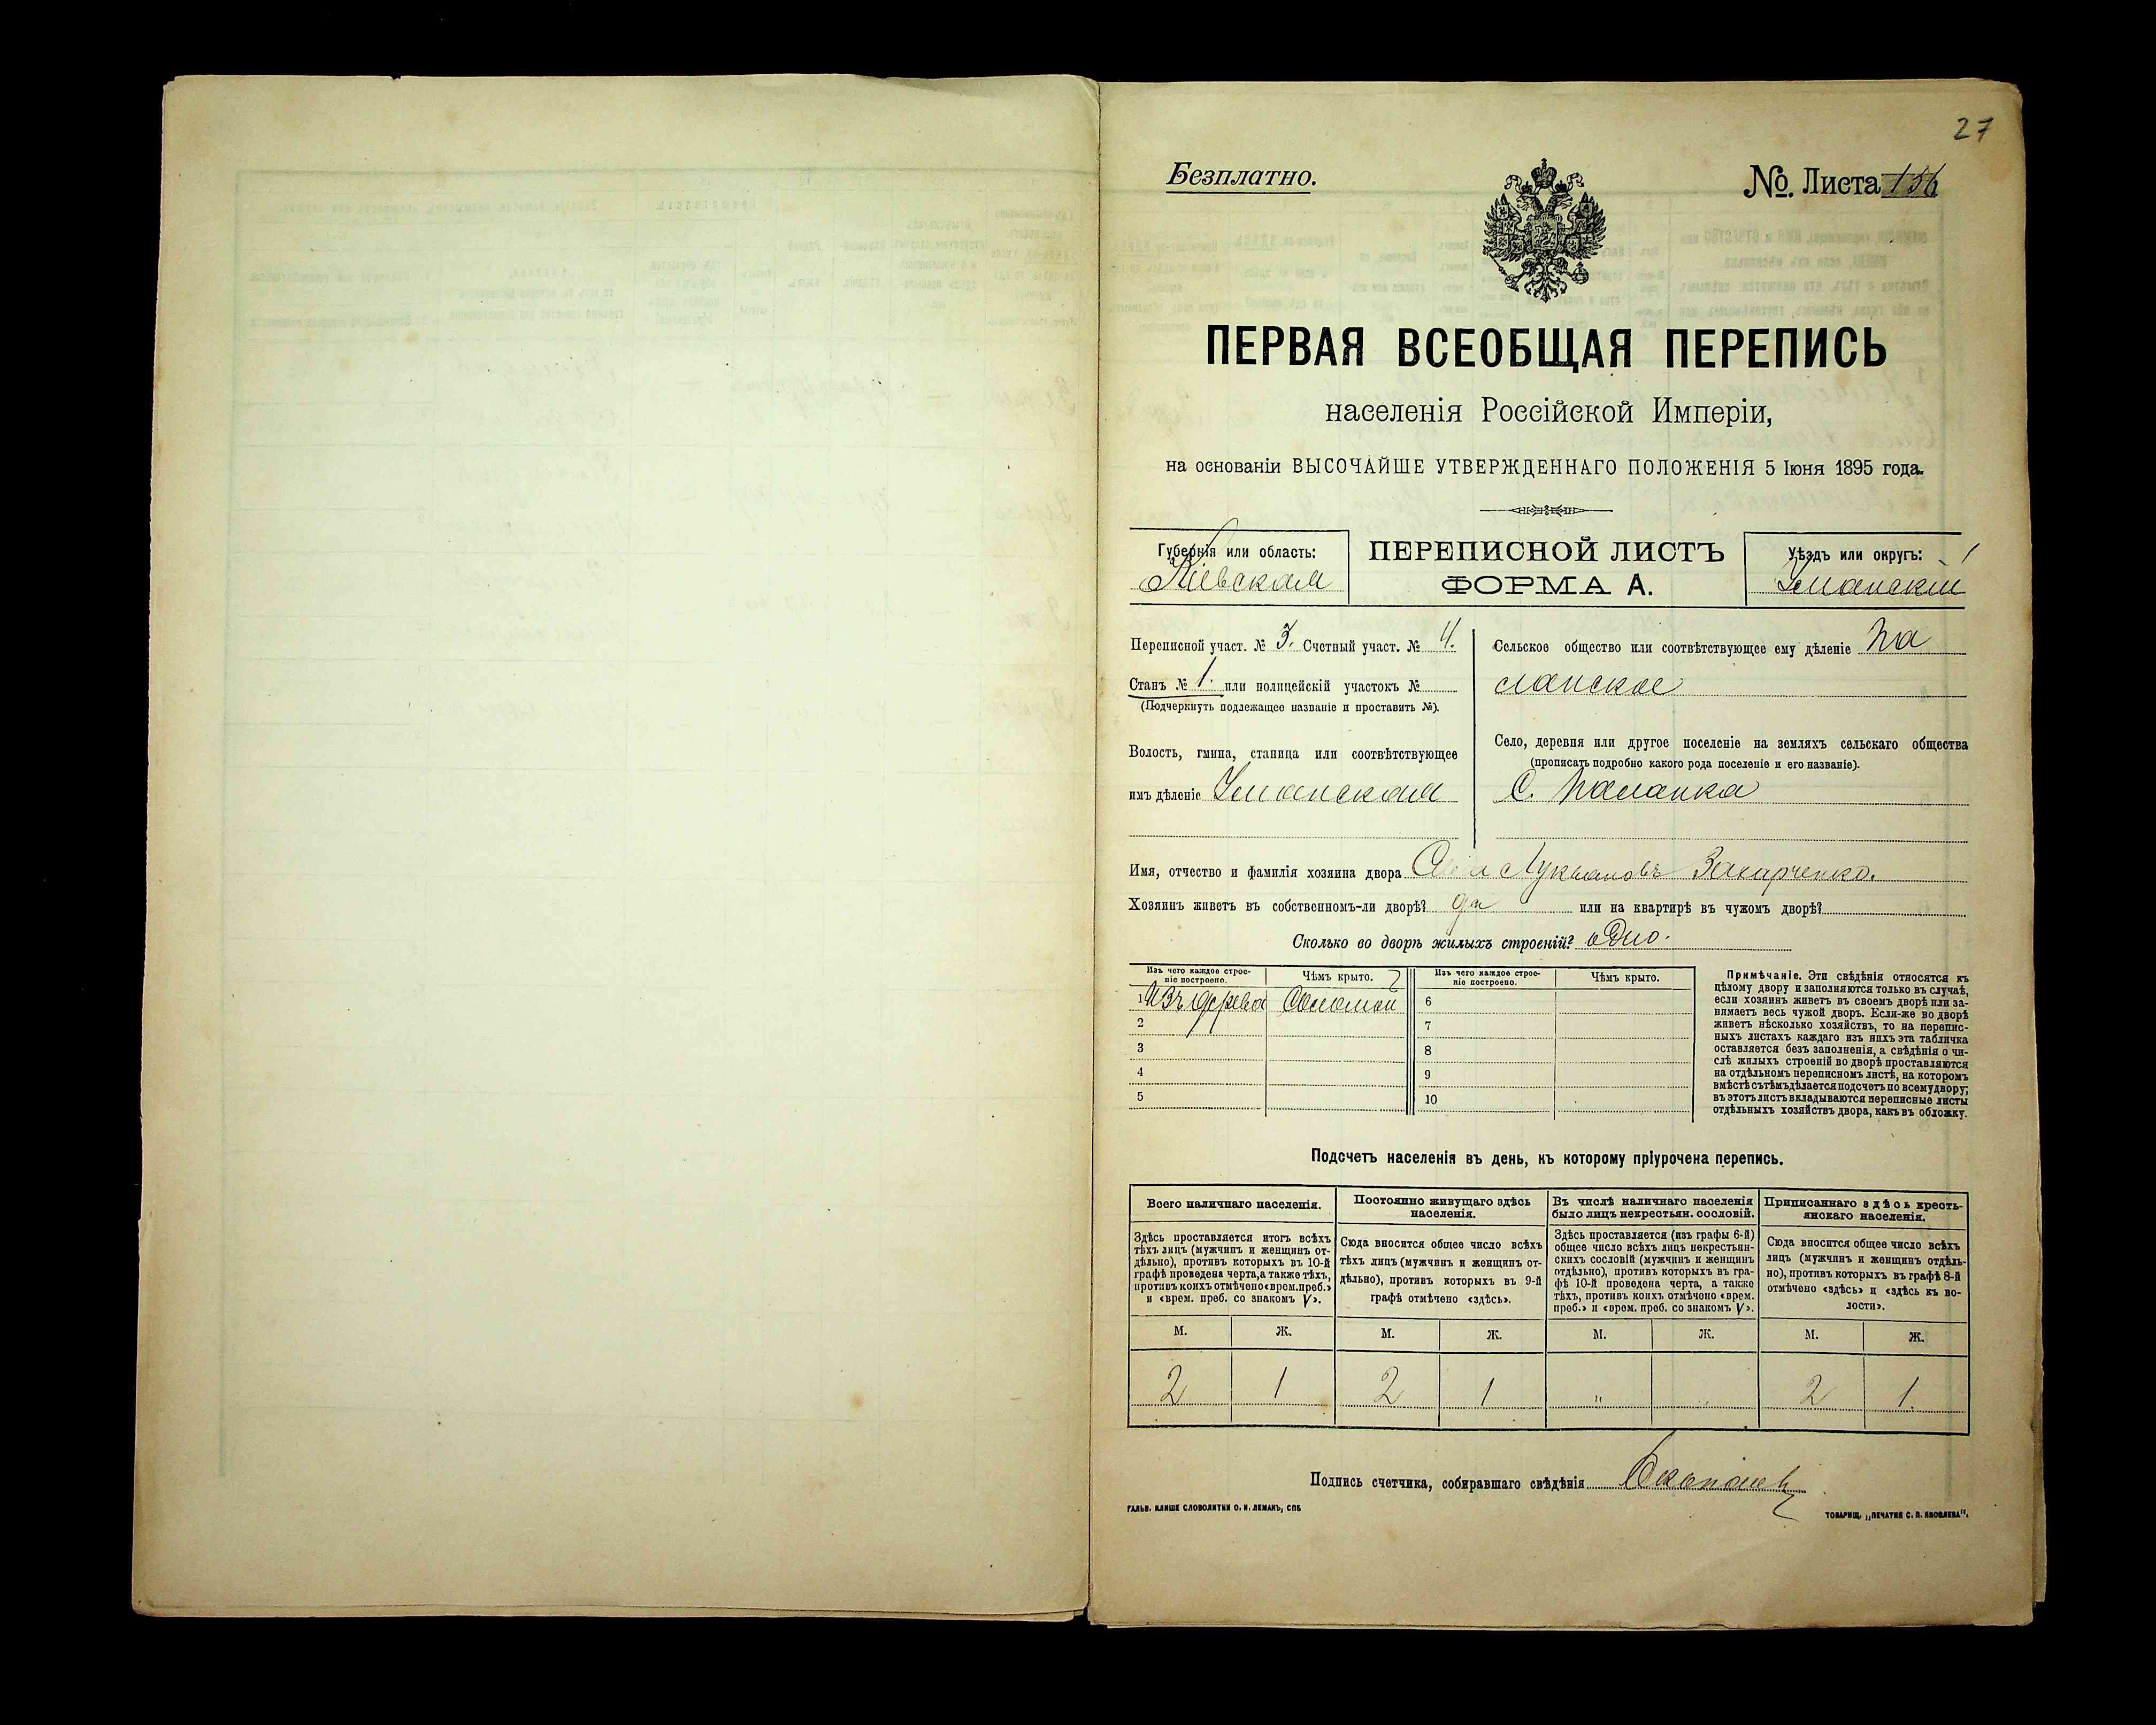 27
Безплатно.
№. Листа 156
ПЕРВАЯ ВСЕОБЩАЯ ПЕРЕПИСЬ
населенія Россійской Имперіи,
на основаніи ВЫСОЧАЙШЕ УТВЕРЖДЕННАГО ПОЛОЖЕНІЯ 5 Іюня 1895 года.
Губернія или область:
Кіевская
ПЕРЕПИСНОЙ ЛИСТЪ
ФОРМА А.
Уѣздъ или округъ:
Уманскій
Переписной участ. № 3. Счетный участ. № 4.
Станъ № 1. или полицейскій участокъ №
(Подчеркнуть подлежащее названіе и проставить №).
Волость, гмина, станица или соотвѣтствующее
имъ дѣленіе Уманская
Сельское общество или соотвѣтствующее ему дѣленіе Па
ланское
Село, деревня или другое поселеніе на земляхъ сельскаго общества
(прописать подробно какого рода поселеніе и его названіе).
С. Паланка
Имя, отчество и фамилія хозяина двора Лукьяновъ Захарченко.
Хозяинъ живетъ въ собственномъ-ли дворѣ? да или на квартирѣ въ чужомъ дворѣ?
Сколько во дворѣ жилыхъ строеній? одно.
Изъ чего каждое строе-
ніе построено.
Чѣмъ крыто.
1 Изъ дерева Соломой
2
3
4
5
Изъ чего каждое строе-
ніе построено.
Чѣмъ крыто.
6
7
8
9
10
Примѣчаніе. Эти свѣдѣнія относятся къ
цѣлому двору и заполняются только въ случаѣ,
если хозяинъ живетъ въ своемъ дворѣ или за-
нимаетъ весь чужой дворъ. Если-же во дворѣ
живетъ нѣсколько хозяйствъ, то на перепис-
ныхъ листахъ каждаго изъ нихъ эта табличка
оставляется безъ заполненія, а свѣдѣнія о чи-
слѣ жилыхъ строеній во дворѣ проставляются
на отдѣльномъ переписномъ листѣ, на которомъ
вмѣстѣ съ тѣмъ дѣлается подсчетъ по всему двору;
въ этотъ листъ вкладываются переписные листы
отдѣльныхъ хозяйствъ двора, какъ въ обложку.
Подсчетъ населенія въ день, къ которому пріурочена перепись.
Всего наличнаго населенія.
Здѣсь проставляется итогъ всѣхъ
тѣхъ лицъ (мужчинъ и женщинъ от-
дѣльно), противъ которыхъ въ 10-й
графѣ проведена черта, а также тѣхъ,
противъ коихъ отмѣчено «врем. преб.»
и «врем. преб. со знакомъ V».
М. Ж.
2 1
Постоянно живущаго здѣсь
населенія.
Сюда вносится общее число всѣхъ
тѣхъ лицъ (мужчинъ и женщинъ от-
дѣльно), противъ которыхъ въ 9-й
графѣ отмѣчено «здѣсь».
М. Ж.
2 1
Въ числѣ наличнаго населенія
было лицъ некрестьян. сословій.
Здѣсь проставляется (изъ графы 6-й)
общее число всѣхъ лицъ некрестьян-
скихъ сословій (мужчинъ и женщинъ
отдѣльно), противъ которыхъ въ гра-
фѣ 10-й проведена черта, а также
тѣхъ, противъ коихъ отмѣчено «врем.
преб.» и «врем. преб. со знакомъ V».
М. Ж.
" "
Приписаннаго здѣсь кресть-
янскаго населенія.
Сюда вносится общее число всѣхъ
лицъ (мужчинъ и женщинъ отдѣль-
но), противъ которыхъ въ графѣ 8-й
отмѣчено «здѣсь» и «здѣсь къ во-
лости».
М. Ж.
2 1.
Подпись счетчика, собиравшаго свѣдѣнія
ГАЛЬВ. КЛИШЕ СЛОВОЛИТНИ О. И. ЛЕМАНЪ, СПБ
ТОВАРИЩ. „ПЕЧАТНЯ С. П. ЯКОВЛЕВА".